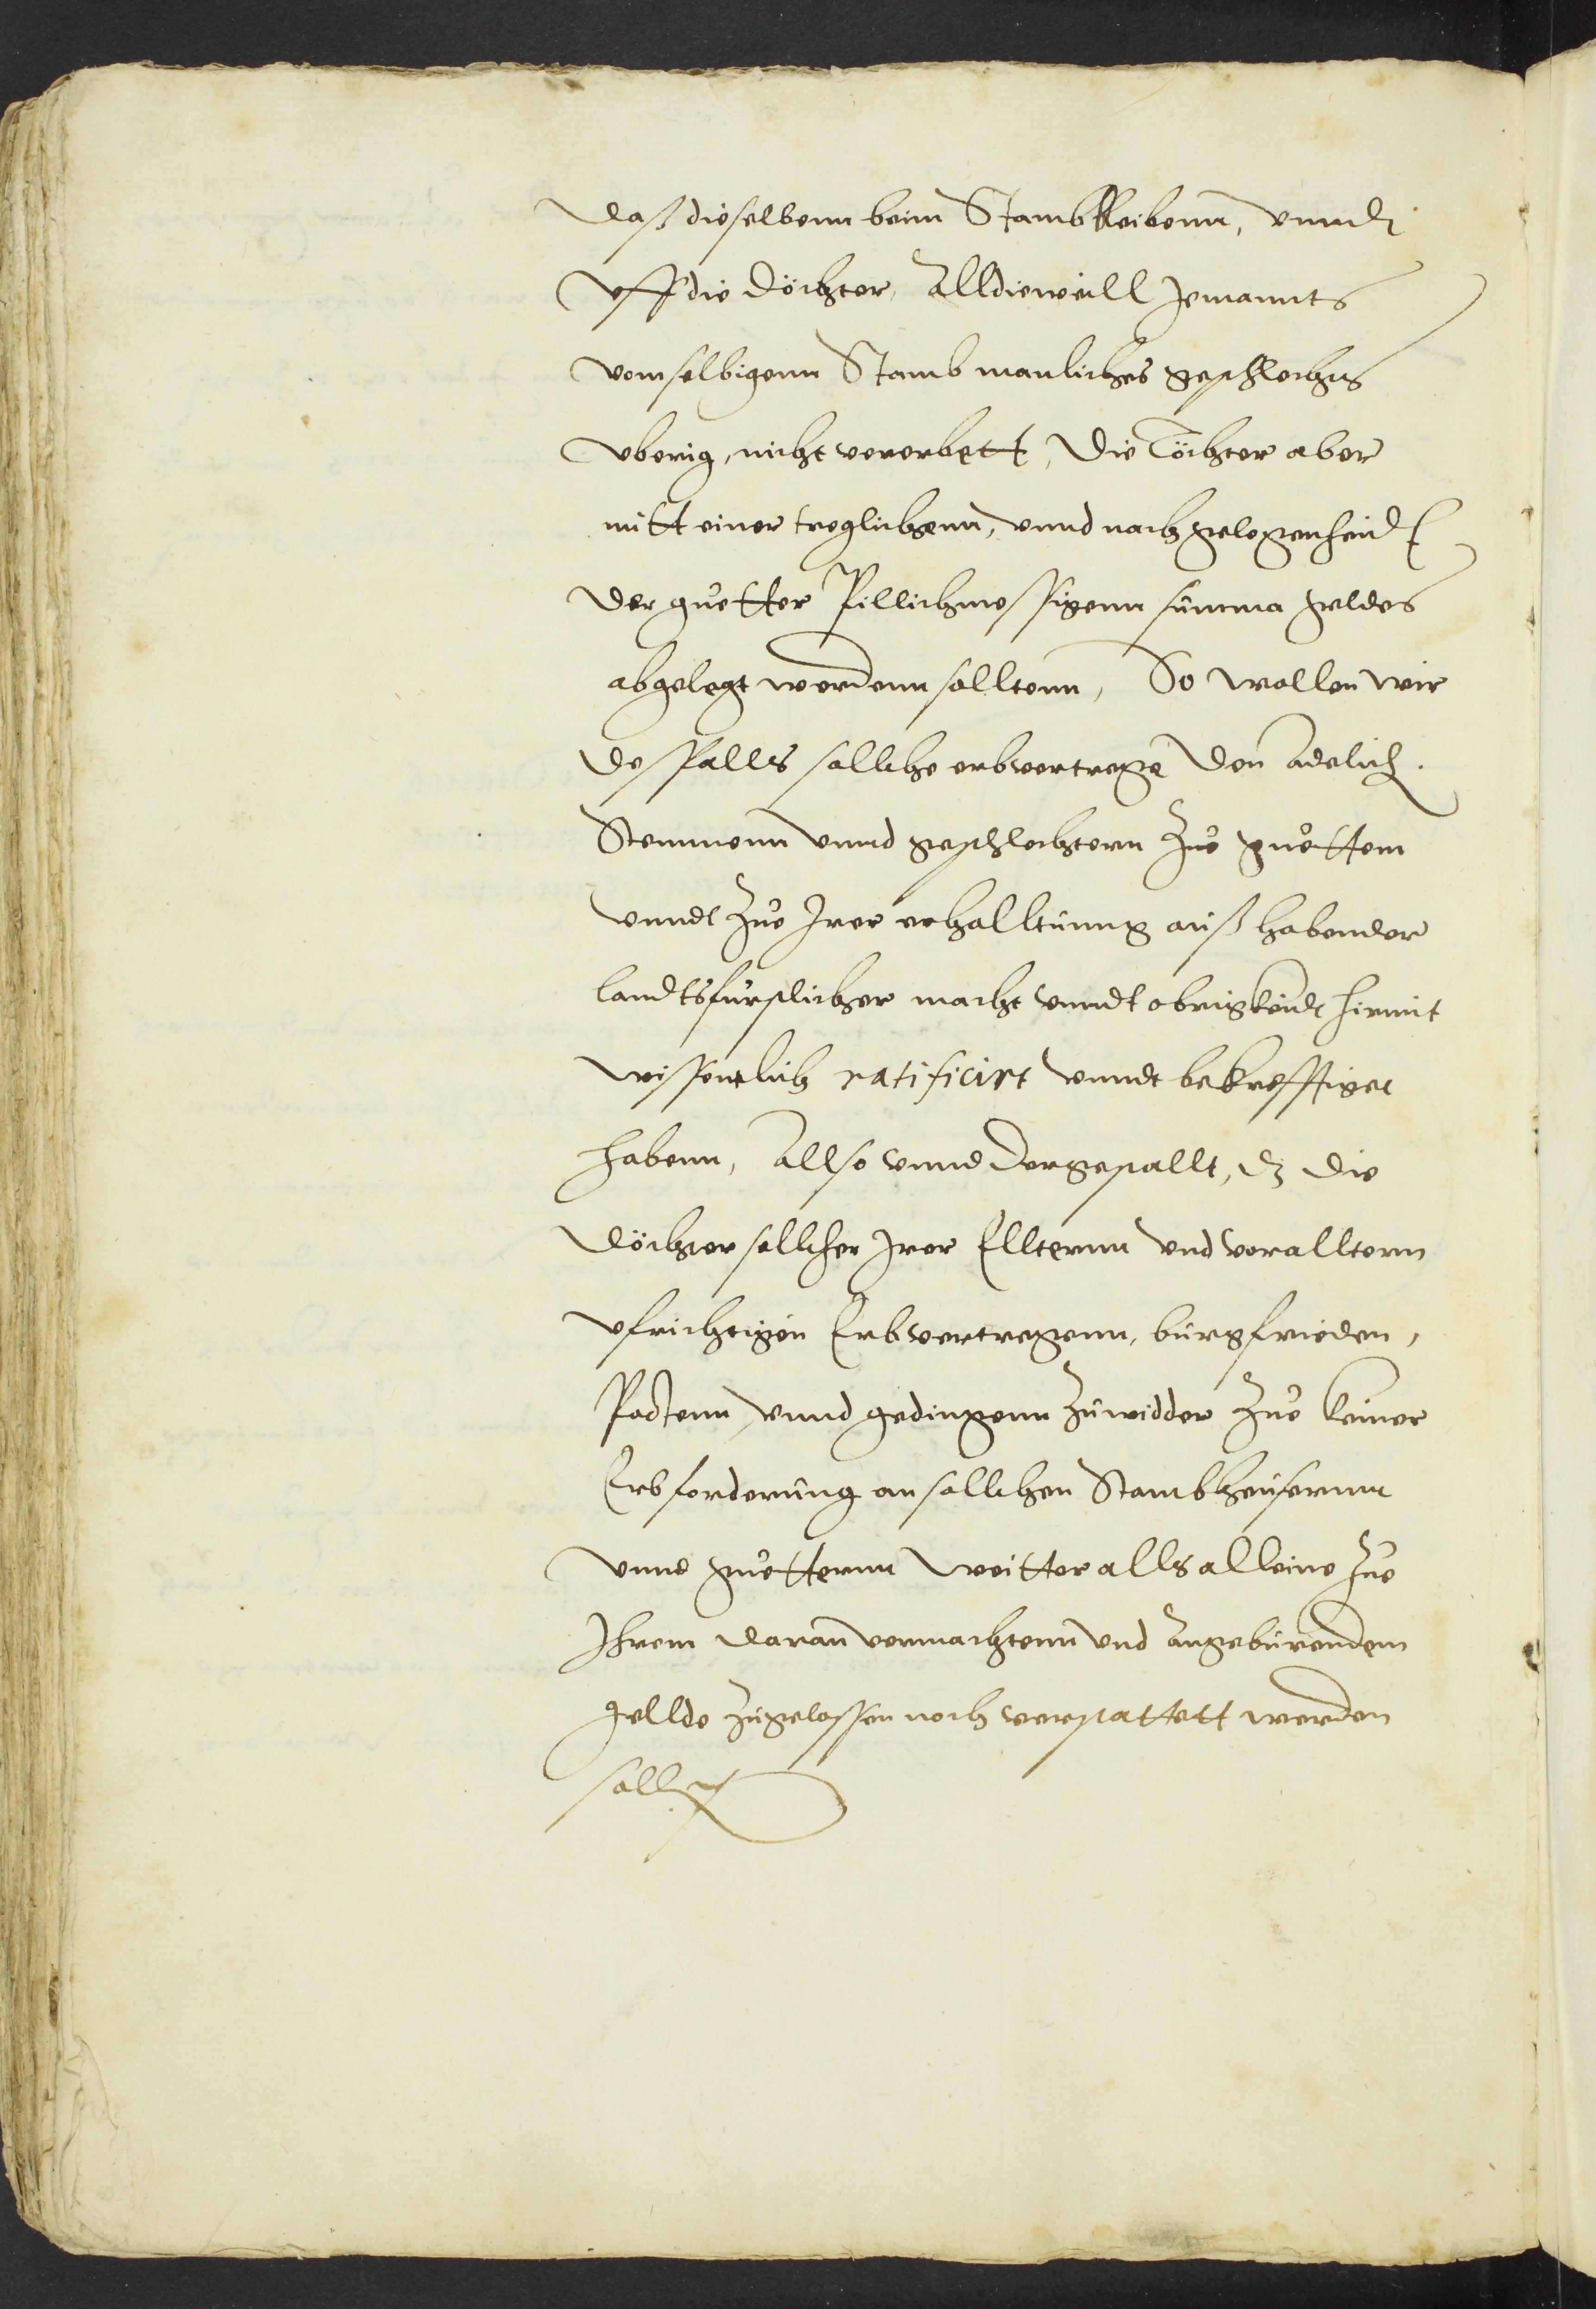 daß dieselbenn beim Stamb bleibenn, vnndt
vff die döchter, Alldieweill Jemannts
vom selbigenn Stamb manliches geschlechts
vberig, nicht vererbett, die Töchter aber
mitt einer treglichenn, vnnd nach gelegenheidt
der guetter Pillichmessigenn summa geldes
abgelegt werdenn solltenn, So wollen wir
desfalls sollche erbvertrege den adelich.
Stemmenn vnnd geschlechtern Zue guettem
vnndt Zue Irer erhalltunng auß habender
landtsfurstlicher macht vnndt obrigkeidt hirmit
wissentlich ratificirt vnndt bekrefftiget
habenn, Allso vnnd dergestallt, dz die
döchter sollcher Irer Ellternn vnd voralltern
vfrichtigen Erbvertregenn, burgfrieden,
Pactenn vnnd gedingenn Zuwidder Zue keiner
Erbforderung an sollchen Stambheusernn
vnnd guetternn weitter alls alleine Zue
Ihrem daran vermachtenn vnd Angeburendem
gellde Zugelassen noch verstattett werden
soll